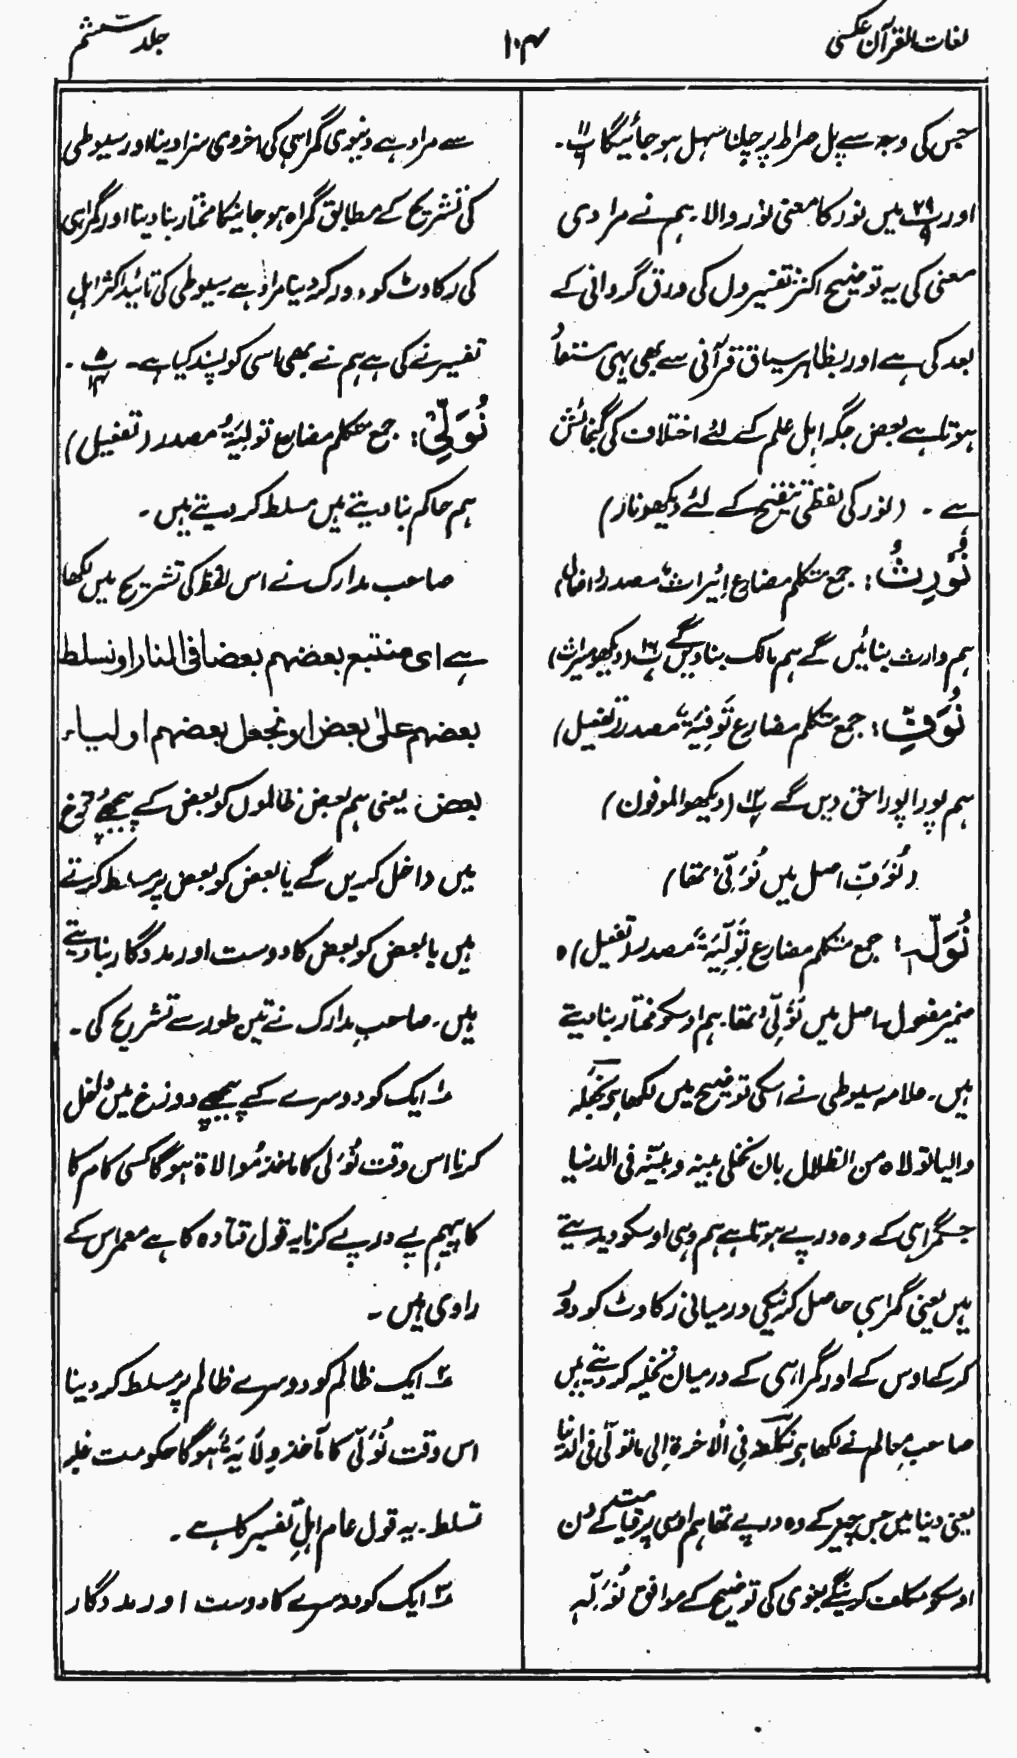 لغات القرآن عکسی
۱۰۴
جلد ششم
جس کی وجہ سے پل صراط پر چلنا سہل ہو جائیگا پ ۱۱/۶ ۔
اور پ ۲۹/۹ میں نور کا معنی نور والا ۔ ہم نے مرادی
معنی کی یہ توضیح اکثر تفسیروں کی ورق گردانی کے
بعد کی ہے اور بظاہر سیاق قرآنی سے بھی یہی مستفاد
ہوتا ہے بعض جگہ اہل علم کے لئے اختلاف کی گنجائش
ہے ۔ (نور کی لفظی تنقیح کے لئے دیکھو نار)
نُورِثُ : جمع متکلم مضارع اِیْرَاثٌ مصدر (افعال)
ہم وارث بنائیں گے ہم مالک بنا دیں گے پ ۱۶ (دیکھو میراث)
نُوَفِّ : جمع متکلم مضارع تَوْفِیَۃٌ مصدر (تفعیل)
ہم پورا پورا حق دیں گے پ ۱۲ (دیکھو الموفون)
(نُوَفِّ اصل میں نُوَفِّیْ تھا)
نُوَلِّہٖ : جمع متکلم مضارع تَوْلِیَۃٌ مصدر (تفعیل) ہ
ضمیر مفعول ۔ اصل میں نُوَلِّیْ تھا ۔ ہم اوسکو مختار بنا دیتے
ہیں ۔ علامہ سیوطی نے اسکی توضیح میں لکھا ہے نجعلہ
والیا لما تولاہ من الضلال بان نخلی بینہ و بینہ فی الدنیا
جس گمراہی کے وہ درپے ہوتا ہے ہم وہی اوسکو دیدیتے
ہیں یعنی گمراہی حاصل کرنیکی درمیانی رکاوٹ کو دور
کرکے اوس کے اور گمراہی کے درمیان تخلیہ کر دیتے ہیں
صاحب معالم نے لکھا ہے نکلہ فِی الْاٰخرۃ اِلٰی ما تولّٰی فی الدنیا
یعنی دنیا میں جس چیز کے وہ درپے تھا ہم اوسی پر قیامت کے دن
اوسکو مکلف کرینگے بغوی کی توضیح کے موافق نُوَلِّہٖ
سے مراد ہے دنیوی گمراہی کی اخروی سزا دینا اور سیوطی
کی تشریح کے مطابق گمراہ ہو جانیکا مختار بنا دینا اور گمراہی
کی رکاوٹ کو دور کر دینا مراد ہے ۔ سیوطی کی تائید اکثر اہل
تفسیر نے کی ہے ہم نے بھی اسی کو پسند کیا ہے ۔ پ ۵/۱۴ ۔
نُوَلِّیْ : جمع متکلم مضارع تَوْلِیَۃٌ مصدر (تفعیل)
ہم حاکم بنا دیتے ہیں مسلط کر دیتے ہیں ۔
صاحب مدارک نے اس لفظ کی تشریح میں لکھا
ہے ای نتبع بعضھم بعضا فی النار او نسلط
بعضھم علیٰ بعض او نجعل بعضھم اولیاء
بعض یعنی ہم بعض ظالموں کو بعض کے پیچھے دوزخ
میں داخل کریں گے یا بعض کو بعض پر مسلط کرتے
ہیں یا بعض کو بعض کا دوست اور مددگار بنا دیتے
ہیں ۔ صاحب مدارک نے تین طور سے تشریح کی ۔
۱ ایک کو دوسرے کے پیچھے دوزخ میں داخل
کرنا اس وقت نُوَلّی کا ماخذ مُوالاۃ ہوگا کسی کام کا
کا پیہم پے در پے کرنا یہ قول قتادہ کا ہے معمر اس کے
راوی ہیں ۔
۲ ایک ظالم کو دوسرے ظالم پر مسلط کر دینا
اس وقت نُوَلّی کا مآخذ وِلَایَۃٌ ہوگا حکومت غلبہ
تسلط ۔ یہ قول عام اہلِ تفسیر کا ہے ۔
۳ ایک کو دوسرے کا دوست اور مددگار